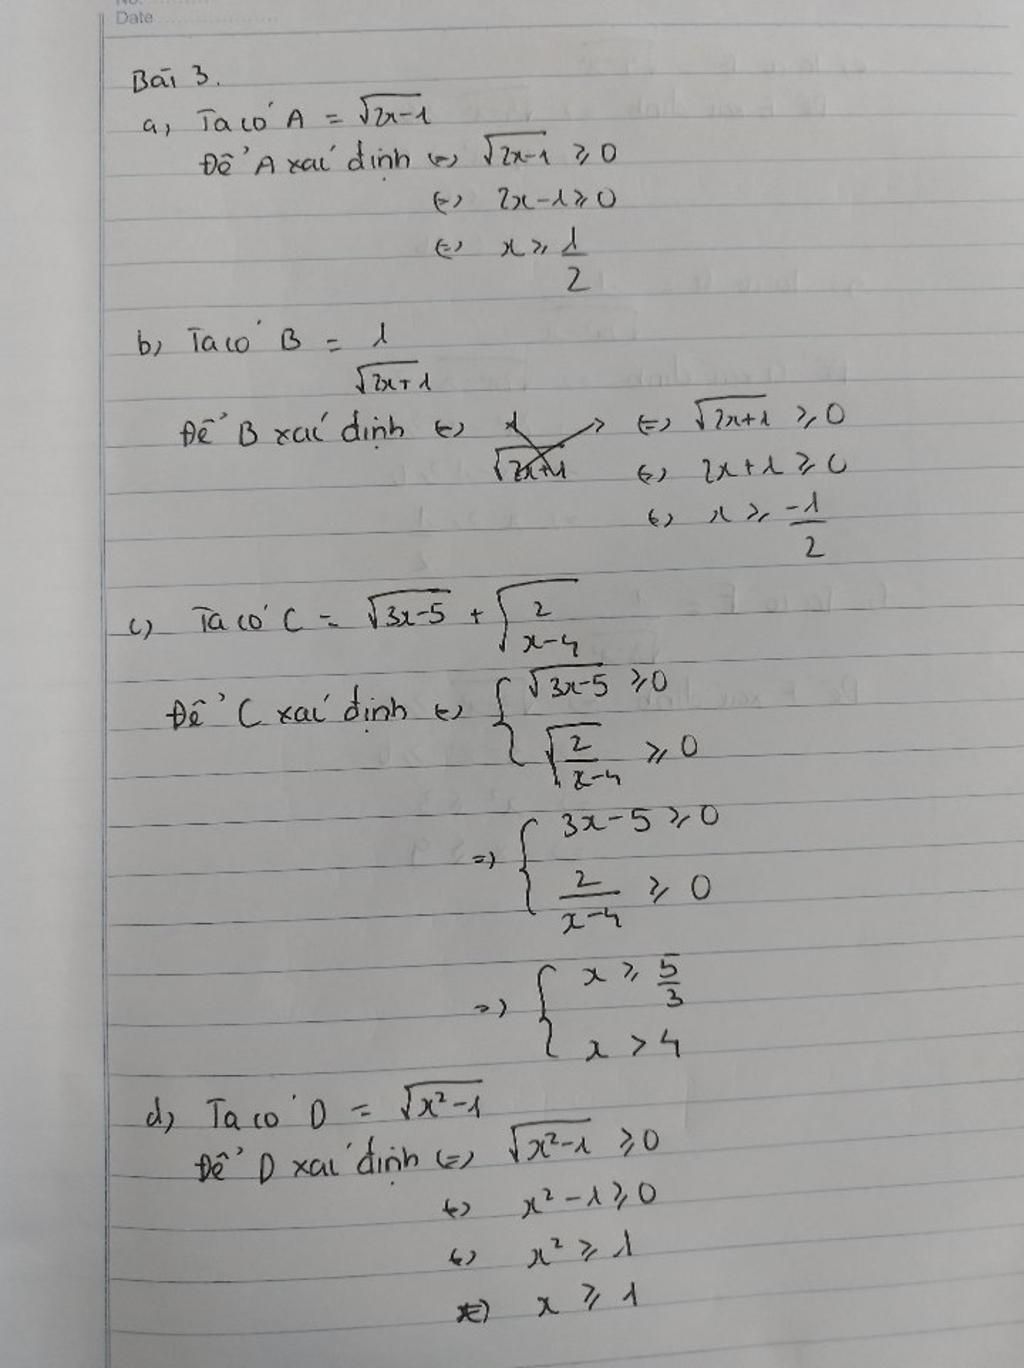 No.
Date
Bài 3.
a, Ta có A = √(2x-1)
Để A xác định ⇔ √(2x-1) ≥ 0
⇔ 2x-1 ≥ 0
⇔ x ≥ 1/2
b, Ta có B = 1/√(2x+1)
Để B xác định ⇔ ⇔ √(2x+1) ≥ 0
⇔ 2x+1 ≥ 0
⇔ x ≥ -1/2
c, Ta có C = √(3x-5) + √(2/(x-4))
Để C xác định ⇔ { √(3x-5) ≥ 0
√(2/(x-4)) ≥ 0
⇒ { 3x-5 ≥ 0
2/(x-4) ≥ 0
⇒ { x ≥ 5/3
x > 4
d, Ta có D = √(x²-1)
Để D xác định ⇔ √(x²-1) ≥ 0
⇔ x²-1 ≥ 0
⇔ x² ≥ 1
⇔ x ≥ 1